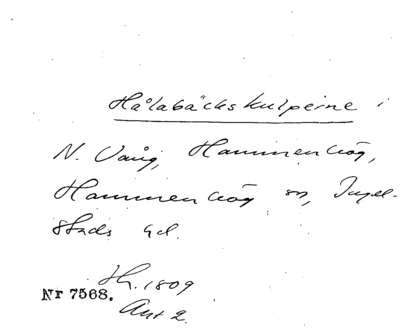 Hålabäckskulperne i
N. Vång, Hammenhög,
Hammenhög sn, Ingel-
stads hd.
Th. 1809
Nr 7568.
Ant 2.